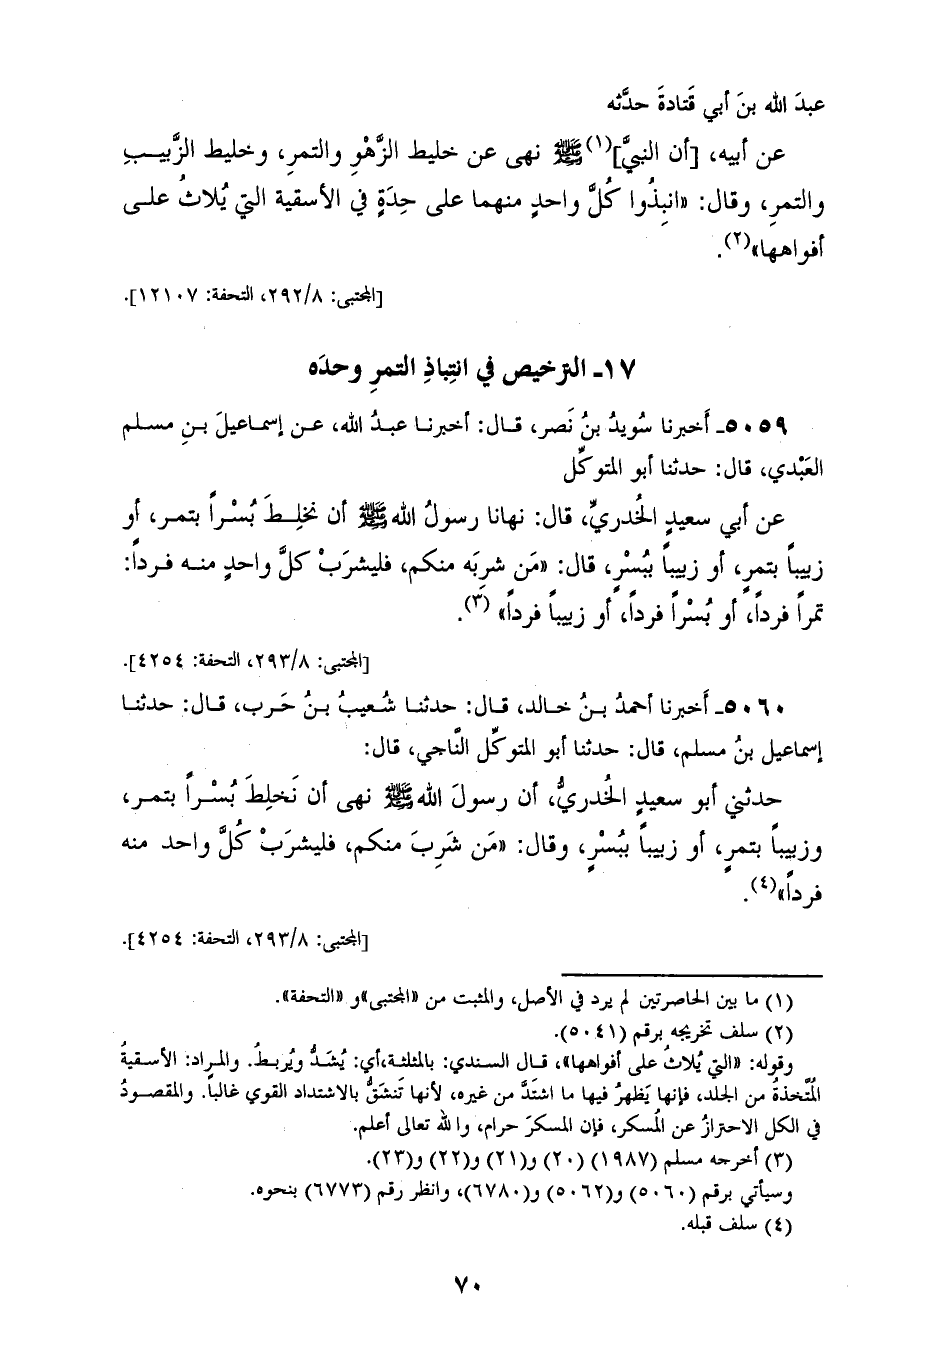 عبدَ الله بنَ أبي قَتادةَ حدَّثه
عن أبيه، [أن النبيَّ](١)ﷺ نهى عن خليط الزَّهْوِ والتمرِ، وخليط الزَّبيبِ
والتمرِ، وقال: «انبِذُوا كُلَّ واحدٍ منهما على حِدَةٍ في الأسقية التي يُلاثُ على
أفواهها»(٢).
[المجتبى: ٢٩٢/٨، التحفة: ١٢١٠٧].
١٧ـ الترخيص في انتِباذِ التمرِ وحدَه
٥٠٥٩ـ أَخبرنا سُويدُ بنُ نَصر، قال: أخبرنا عبدُ الله، عن إسماعيلَ بنِ مسلم
العَبْدي، قال: حدثنا أبو المتوكِّل
عن أبي سعيدٍ الخُدريِّ، قال: نهانا رسولُ اللهﷺ أن نخلِطَ بُسْراً بتمر، أو
زبيباً بتمرٍ، أو زبيباً ببُسْرٍ، قال: «مَن شرِبَه منكم، فليشرَبْ كلَّ واحدٍ منه فرداً:
تمراً فرداً، أو بُسْراً فرداً، أو زبيباً فرداً» (٣).
[المجتبى: ٢٩٣/٨، التحفة: ٤٢٥٤].
٥٠٦٠ـ أَخبرنا أحمدُ بنُ خالد، قال: حدثنا شُعيبُ بنُ حَرب، قال: حدثنا
إسماعيل بنُ مسلم، قال: حدثنا أبو المتوكِّل النَّاجي، قال:
حدثني أبو سعيدٍ الخُدريُّ، أن رسولَ اللهﷺ نهى أن نَخلِطَ بُسْراً بتمر،
وزبيباً بتمرٍ، أو زبيباً ببُسْرٍ، وقال: «مَن شَرِبَ منكم، فليشرَبْ كُلَّ واحد منه
فرداً»(٤).
[المجتبى: ٢٩٣/٨، التحفة: ٤٢٥٤].
(١) ما بين الحاصرتين لم يرد في الأصل، والمثبت من «المجتبى»و «التحفة».
(٢) سلف تخريجه برقم (٥٠٤١).
وقوله: «التي يُلاثُ على أفواهها»، قال السندي: بالمثلثة،أي: يُشَدُّ ويُربطُ. والمراد: الأسقيةُ
المُتَّخذةُ من الجلد، فإنها يَظهرُ فيها ما اشتَدَّ من غيره، لأنها تَنشَقُّ بالاشتداد القوي غالباً. والمقصودُ
في الكل الاحترازُ عن المُسكر، فإن المسكرَ حرام، والله تعالى أعلم.
(٣) أخرجه مسلم (١٩٨٧) (٢٠) و(٢١) و(٢٢) و(٢٣).
وسيأتي برقم (٥٠٦٠) و(٥٠٦٢) و(٦٧٨٠)، وانظر رقم (٦٧٧٣) بنحوه.
(٤) سلف قبله.
٧٠